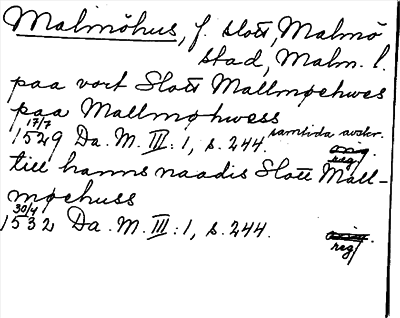 Malmöhus, f. slott, Malmö
stad, Malm. l.
paa vort Slott Mallmøehwes
paa Mallmøhwess
17/7
1529 Da. M. III: 1, s. 244. samtida avskr.
reg.
till hanns naadis Slott Mall-
møchuss
30/4
1532 Da. M. III: 1, s. 244.
reg